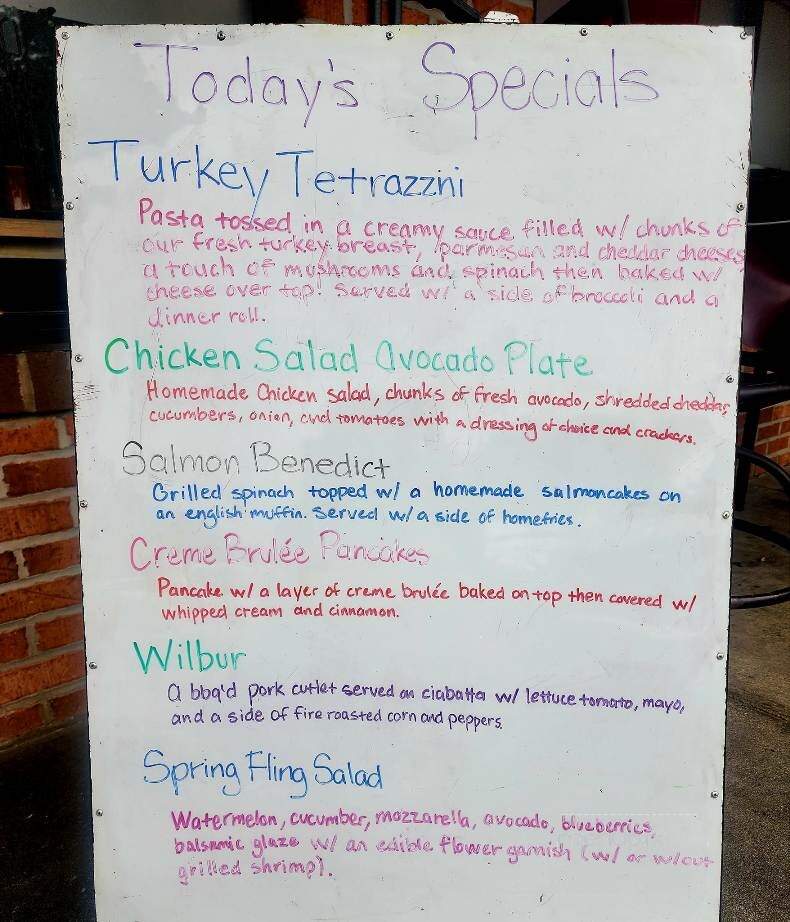 Today's Specials
Turkey Tetrazzini
Pasta tossed in a creamy sauce filled w/ chunks of
our fresh turkey breast, parmesan and cheddar cheeses
a touch of mushrooms and spinach then baked w/
cheese over top! Served w/ a side of broccoli and a
dinner roll.
Chicken Salad Avocado Plate
Homemade Chicken salad, chunks of fresh avocado, shredded cheddar,
cucumbers, onion, and tomatoes with a dressing of choice and crackers.
Salmon Benedict
Grilled spinach topped w/ a homemade salmoncakes on
an english muffin. Served w/ a side of homefries.
Creme Brulée Pancakes
Pancake w/ a layer of creme brulée baked on top then covered w/
whipped cream and cinnamon.
Wilbur
A bbq'd pork cutlet served on ciabatta w/ lettuce tomato, mayo,
and a side of fire roasted corn and peppers.
Spring Fling Salad
Watermelon, cucumber, mozzarella, avocado, blueberries,
balsamic glaze w/ an edible flower garnish (w/ or w/out
grilled shrimp).